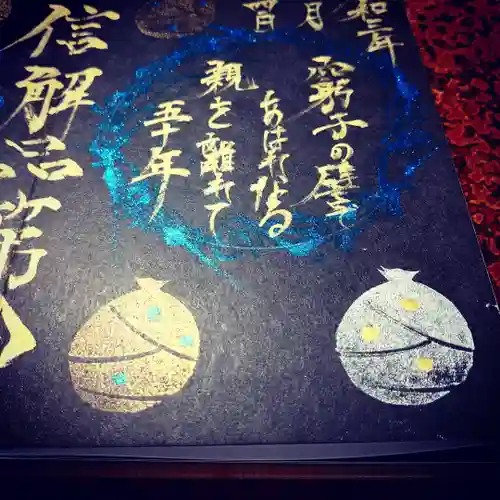 和三年
月
日
窮子の譬
あはれなる
親を離れて
五十年
信解品第